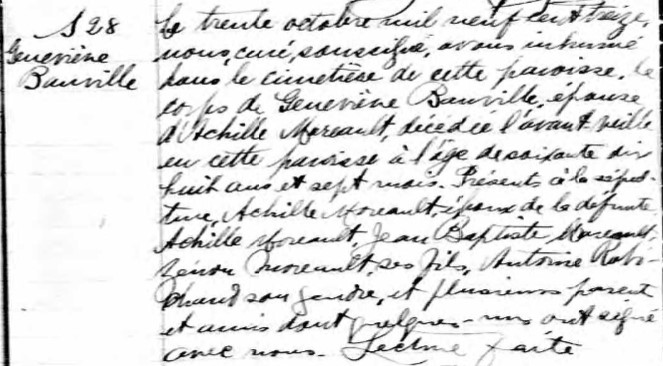 S 28
Geneviève
Bauville
Le trente octobre mil neuf cent treize,
nous, curé, soussigné, avons inhumé
dans le cimetière de cette paroisse, le
corps de Geneviève Bauville, épouse
d'Achille Moreault, décédée l'avant veille
en cette paroisse à l'âge de soixante dix
huit ans et sept mois. Présents à la sépul-
ture, Achille Moreault, époux de la défunte,
Achille Moreault, Jean Baptiste Moreault,
Zénon Moreault, ses fils, Antoine Robi-
chaud son gendre, et plusieurs parent
et amis dont quelques-uns ont signé
avec nous. Lecture faite